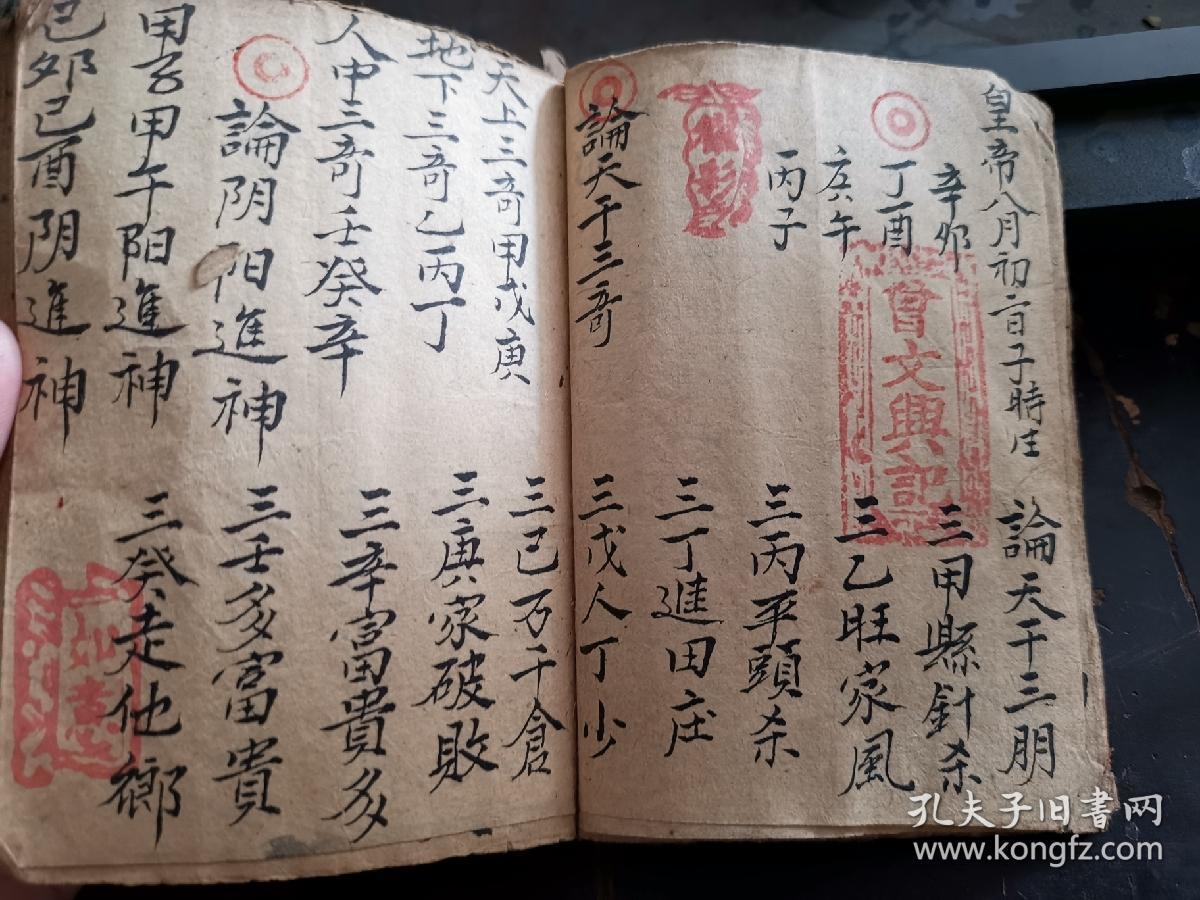 皇帝八月初二日子時生
辛卯
丁酉
庚午
丙子
論天干三朋
三甲縣針杀
三乙旺家風
三丙平頭杀
三丁進田庄
三戊人丁少
論天干三奇
曾文興記
天上三奇甲戊庚
地下三奇乙丙丁
人中三奇壬癸辛
論阴阳進神
甲子甲午阳進神
己卯己酉阴進神
三己万千倉
三庚家破敗
三辛富貴多
三壬多富貴
三癸走他鄉
如意
孔夫子旧书网
www.kongfz.com